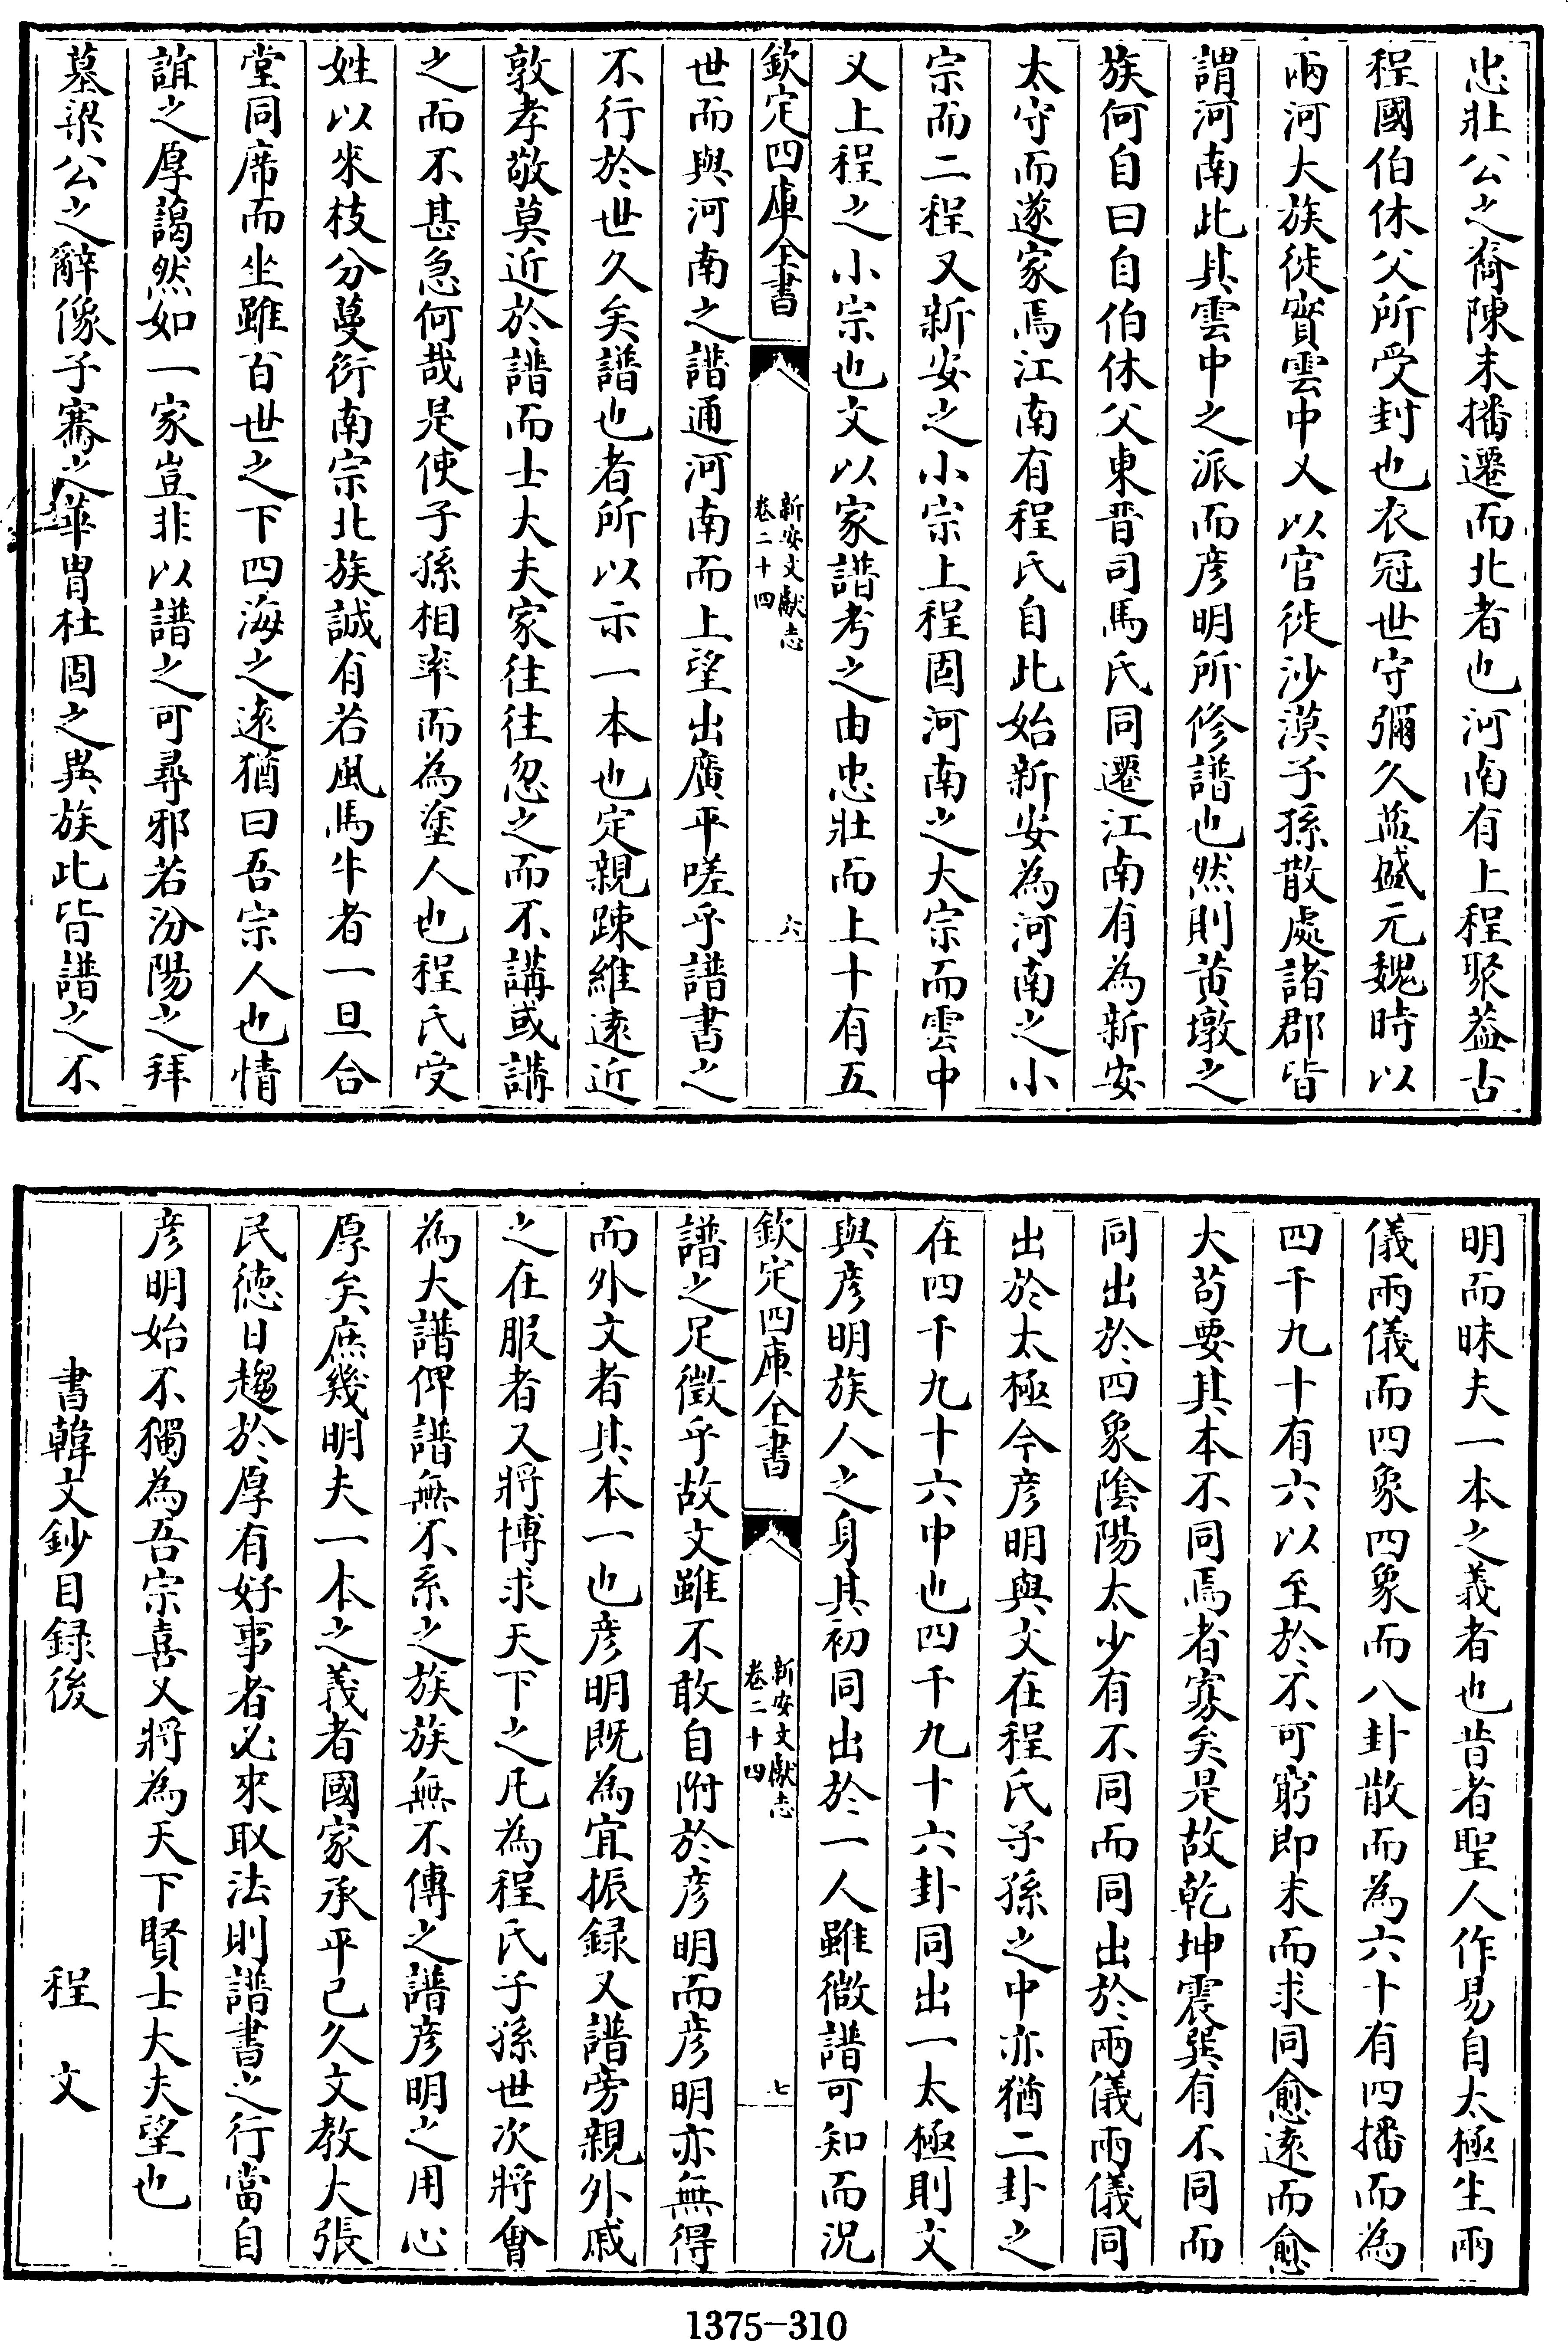 忠壯公之裔陳末播遷而北者也河南有上程聚葢古
程國伯休父所受封也衣冠世守彌久益盛元魏時以
兩河大族徙實雲中又以官徙沙漠子孫散處諸郡皆
謂河南此其雲中之派而彦明所修譜也然則黄墩之
族何自曰自伯休父東晋司馬氏同遷江南有為新安
太守而遂家焉江南有程氏自此始新安為河南之小
宗而二程又新安之小宗上程固河南之大宗而雲中
又上程之小宗也文以家譜考之由忠壯而上十有五
欽定四庫全書
新安文獻志
卷二十四
六
世而與河南之譜通河南而上望出廣平嗟乎譜書之
不行於世久矣譜也者所以示一本也定親踈維逺近
敦孝敬莫近於譜而士大夫家往往忽之而不講或講
之而不甚急何哉是使子孫相率而為塗人也程氏受
姓以來枝分蔓衍南宗北族誠有若風馬牛者一旦合
堂同席而坐雖百世之下四海之逺猶曰吾宗人也情
誼之厚藹然如一家豈非以譜之可尋邪若汾陽之拜
墓梁公之辭像子騫之華胄杜固之異族此皆譜之不
明而昧夫一本之義者也昔者聖人作易自太極生兩
儀兩儀而四象四象而八卦散而為六十有四播而為
四千九十有六以至於不可窮即末而求同愈逺而愈
大苟要其本不同焉者寡矣是故乾坤震巽有不同而
同出於四象陰陽太少有不同而同出於兩儀兩儀同
出於太極今彦明與文在程氏子孫之中亦猶二卦之
在四千九十六中也四千九十六卦同出一太極則文
與彦明族人之身其初同出於一人雖微譜可知而況
欽定四庫全書
新安文獻志
卷二十四
七
譜之足徵乎故文雖不敢自附於彦明而彦明亦無得
而外文者其本一也彦明既為宜振録又譜旁親外戚
之在服者又將博求天下之凡為程氏子孫世次將會
為大譜俾譜無不系之族族無不傳之譜彦明之用心
厚矣庶幾明夫一本之義者國家承平已久文教大張
民徳日趨於厚有好事者必來取法則譜書之行當自
彦明始不獨為吾宗喜又將為天下賢士大夫望也
書韓文鈔目録後　程文
1375-310